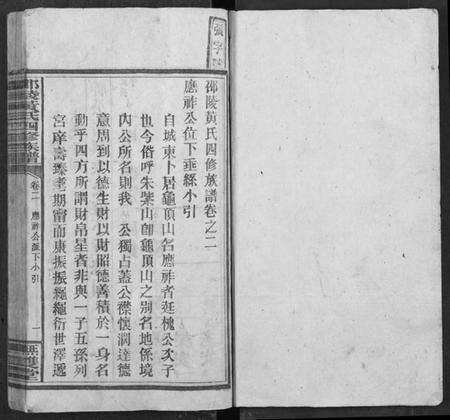 張字號
邵陵黃氏四修族譜卷之二
應祚公位下垂絲小引
自城東卜居龜頂山名應祚者逛槐公次子
也今俗呼朱紫山卽龜頂山之別名地係境
內公所名則我　公獨占蓋公襟懷濶達德
意周到以德生財以財昭德善積於一身名
動乎四方所謂財帛星者非與一子五孫列
宮庠壽臻耄期甯而康振振繩繩衍世澤遞
邵陵黃氏四修族譜
卷二　應祚公派下小引
一
無雙堂